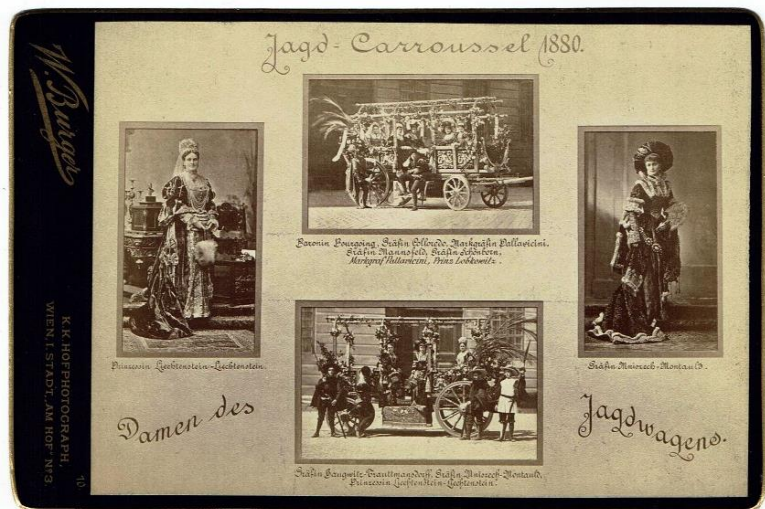 Jagd-Carroussel 1880.
W. Burger
K.K. HOFPHOTOGRAPH,
WIEN, I. STADT, „AM HOF" Nº 3.
10
Baronin Bourgoing, Gräfin Colloredo, Markgräfin Pallavicini,
Gräfin Mannsfeld, Gräfin Schönborn,
Markgraf Pallavicini, Prinz Lobkowitz.
Prinzessin Liechtenstein-Liechtenstein.
Gräfin Mniszech-Montauld.
Damen des
Jagdwagens.
Gräfin Haugwitz-Trauttmansdorff, Gräfin Mniszech-Montauld,
Prinzessin Liechtenstein-Liechtenstein.